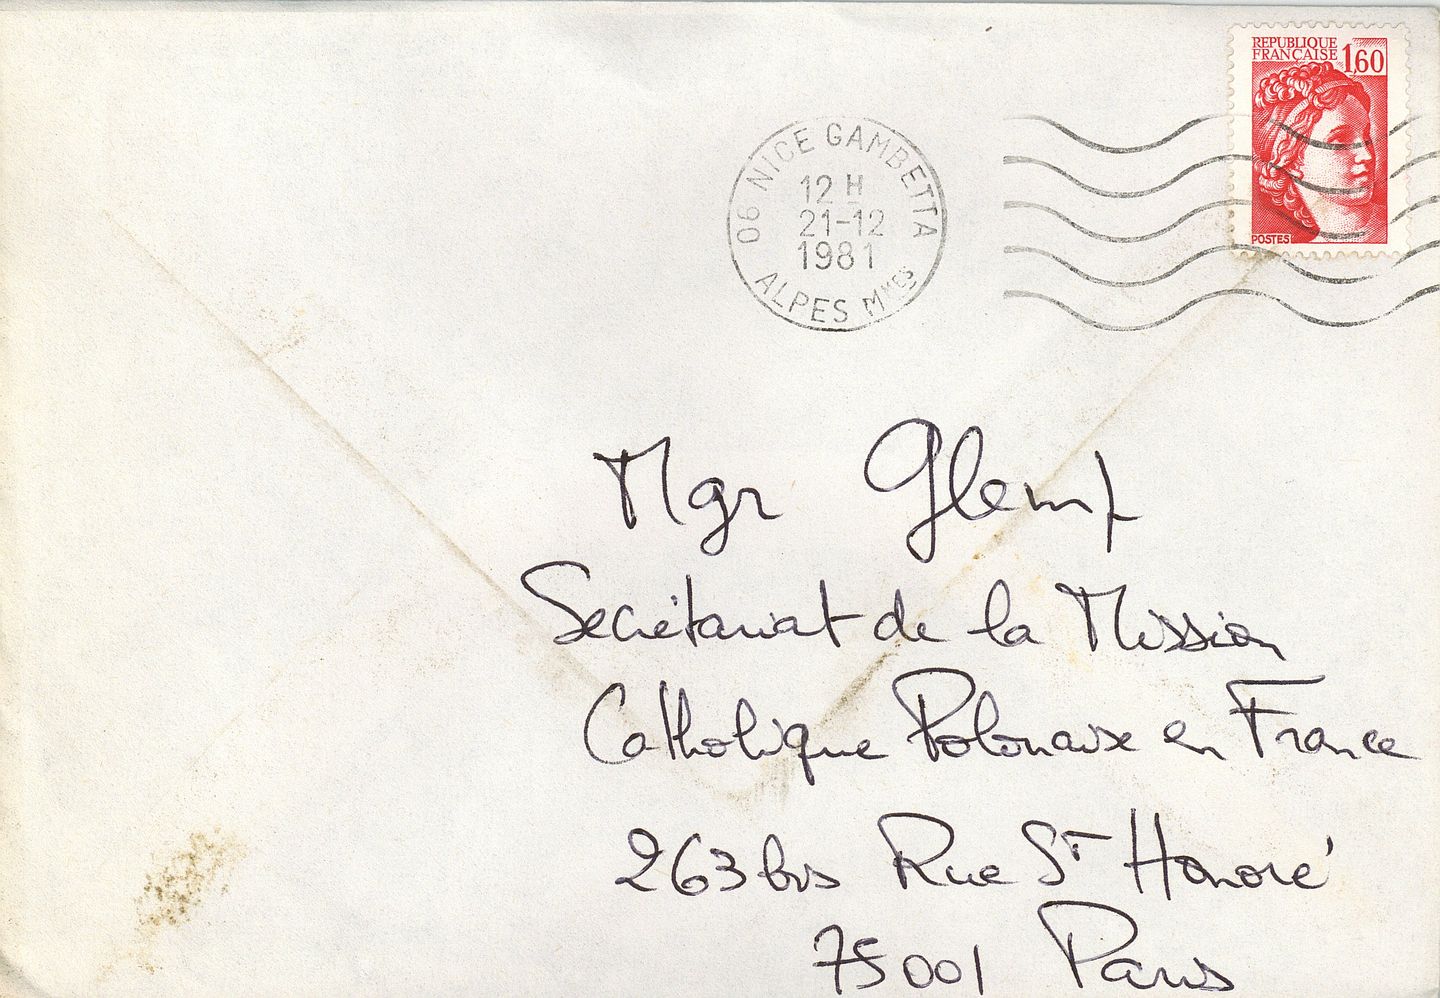 REPUBLIQUE
FRANÇAISE 1,60
POSTES
06 NICE GAMBETTA
12 H
21-12
1981
ALPES Mmes
Mgr Glemp
Secrétariat de la Mission
Catholique Polonaise en France
263 bis Rue St Honoré
75001 Paris